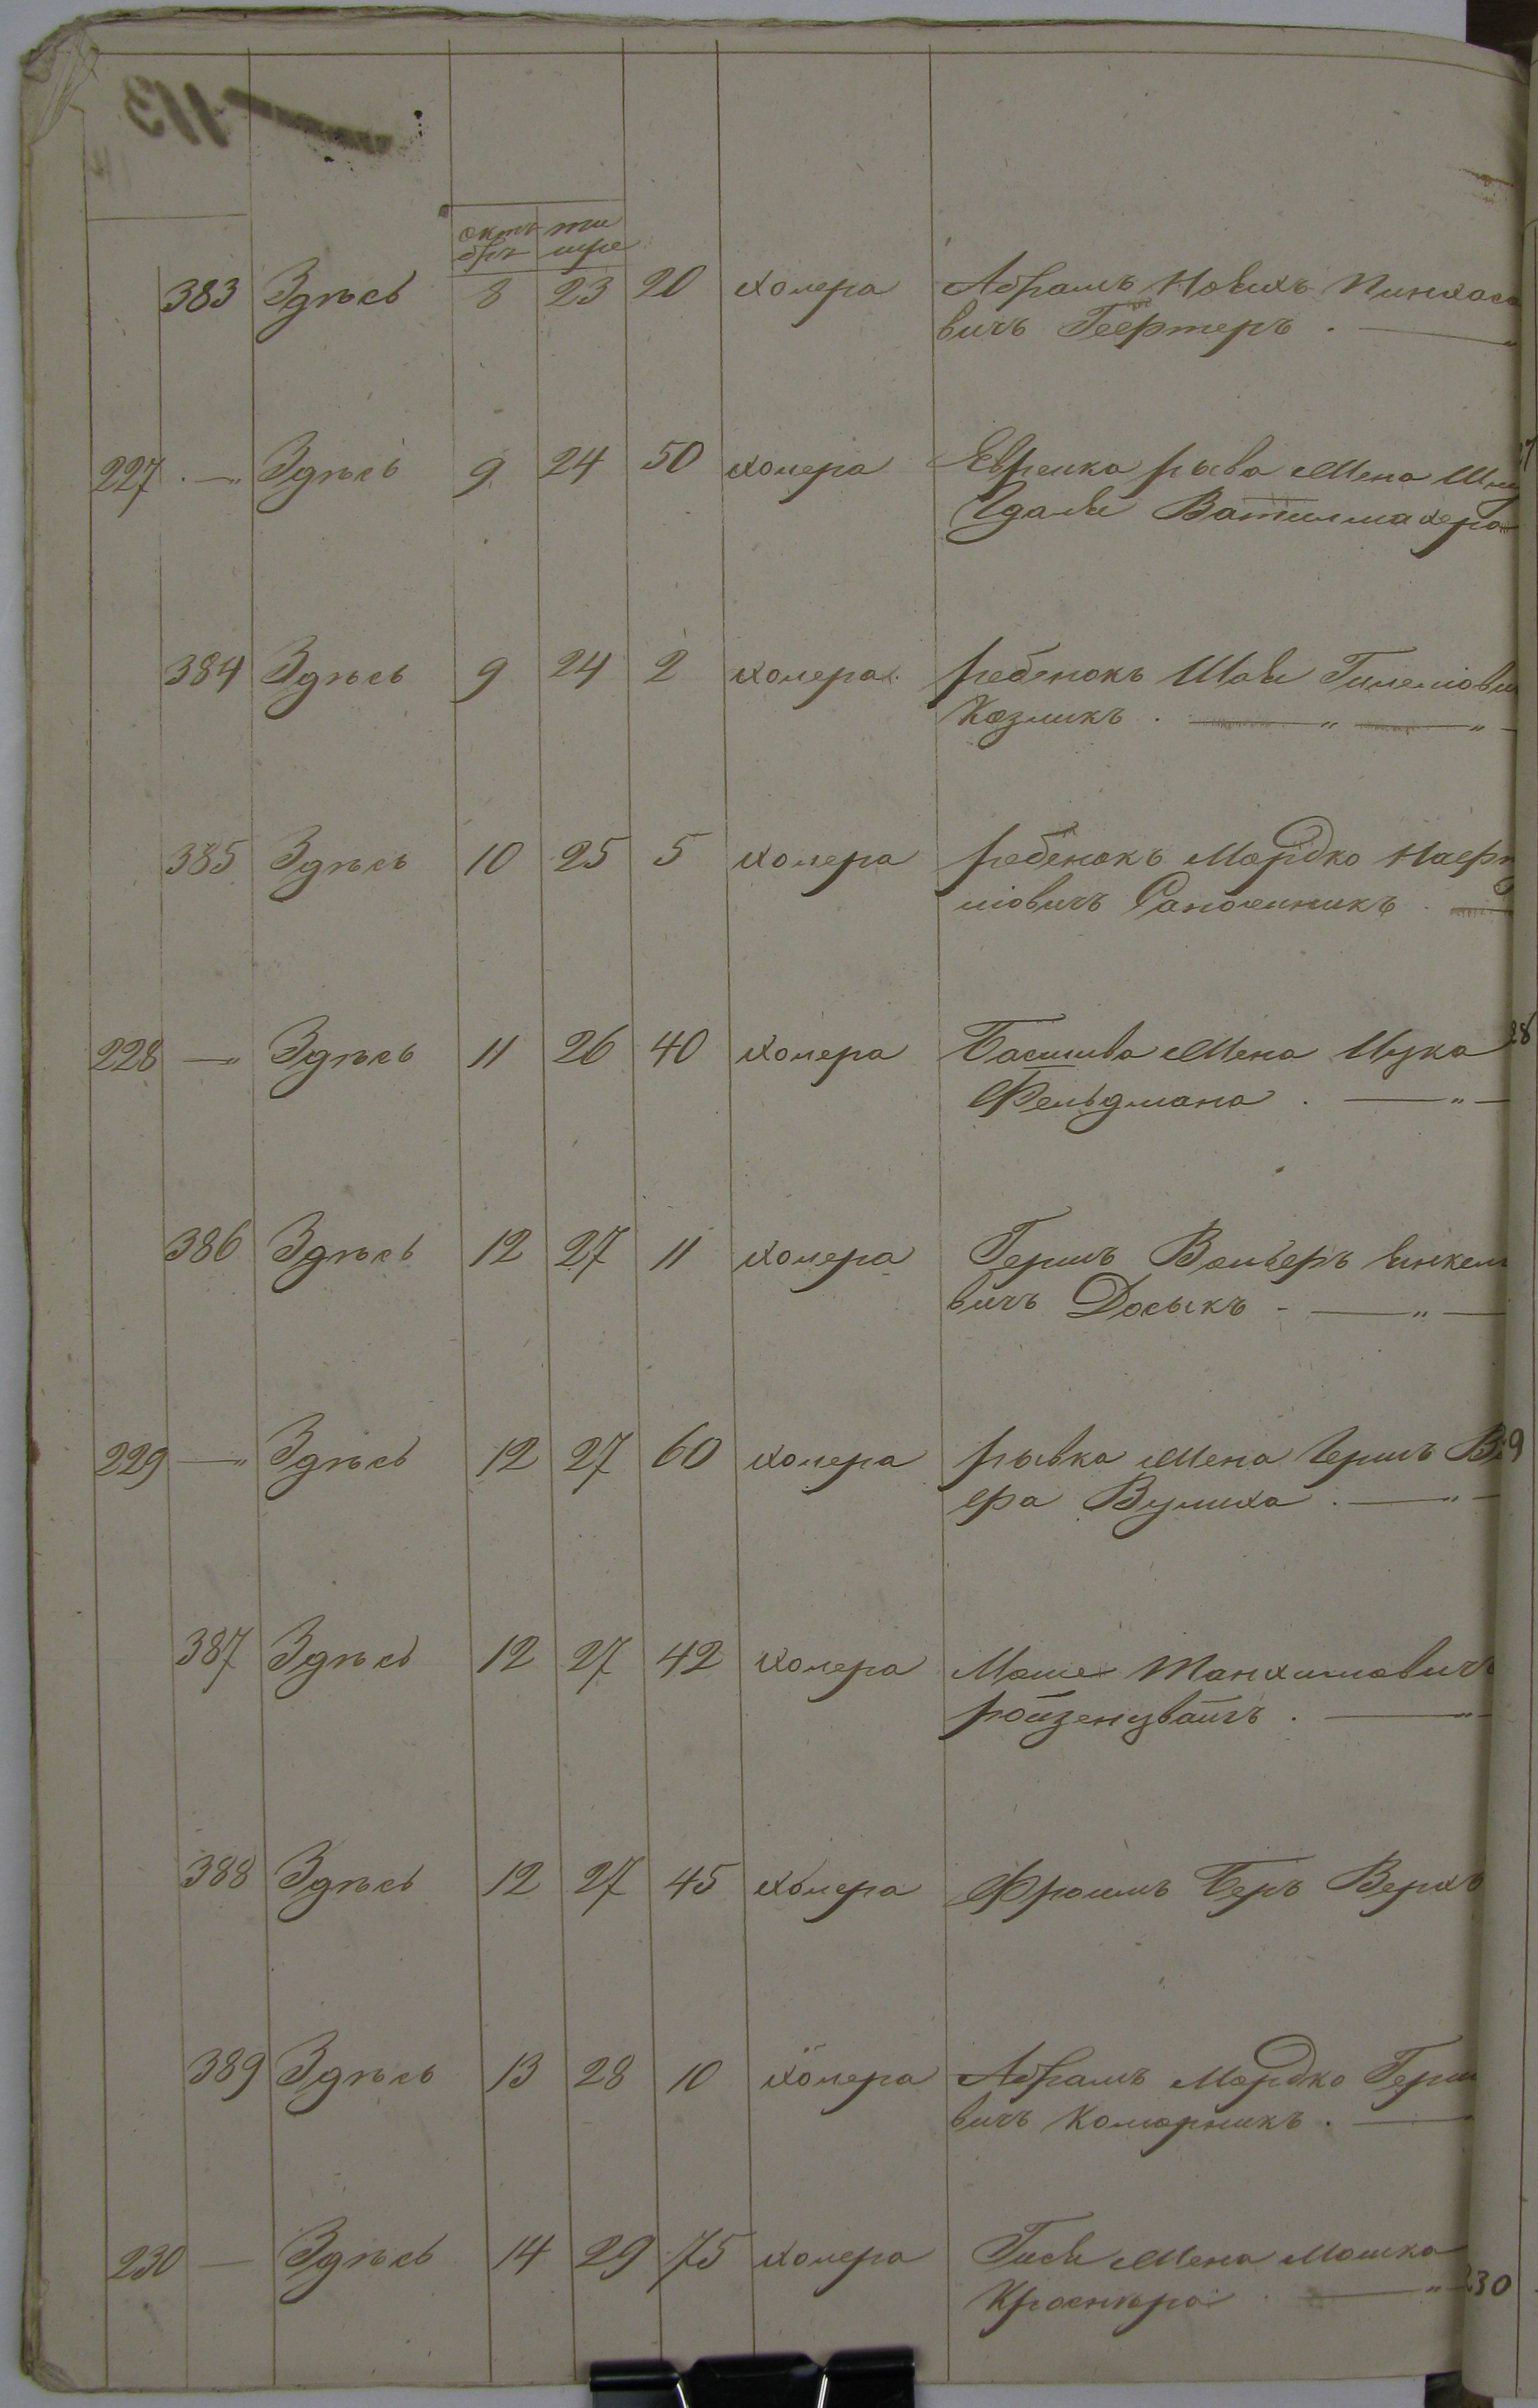 октя ти
брь шре
383 Здѣсь 8 23 20 холера Абрамъ Новихъ Пинхасо
вичъ Гефтеръ . —
227 . —„ Здѣсь 9 24 50 холера Еврейка рыва Жена
Ватинмахера
384 Здѣсь 9 24 2 холера ребенокъ
Козликъ . — „ — „ —
385 Здѣсь 10 25 5 холера ребенокъ Мордко
. —
228 —„ Здѣсь 11 26 40 холера Басшива Жена Ицка 28
Фельдмана . — „ —
386 Здѣсь 12 27 11 холера Гершъ Вольеръ
вичъ Досыкъ - — „ —
229 —„ Здѣсь 12 27 60 холера рывка Жена Гершъ 29
ера Вулиха . — „ —
387 Здѣсь 12 27 42 холера Моше Танхимовичъ
ройзенцвайгъ . — „ —
388 Здѣсь 12 27 45 холера Фроимъ Беръ Верхъ
389 Здѣсь 13 28 10 холера Абрамъ Мордко Герш
вичъ Коморникъ . —
230 — Здѣсь 14 29 75 холера Гися Жена Мошка
Кроентра . — „ — 230